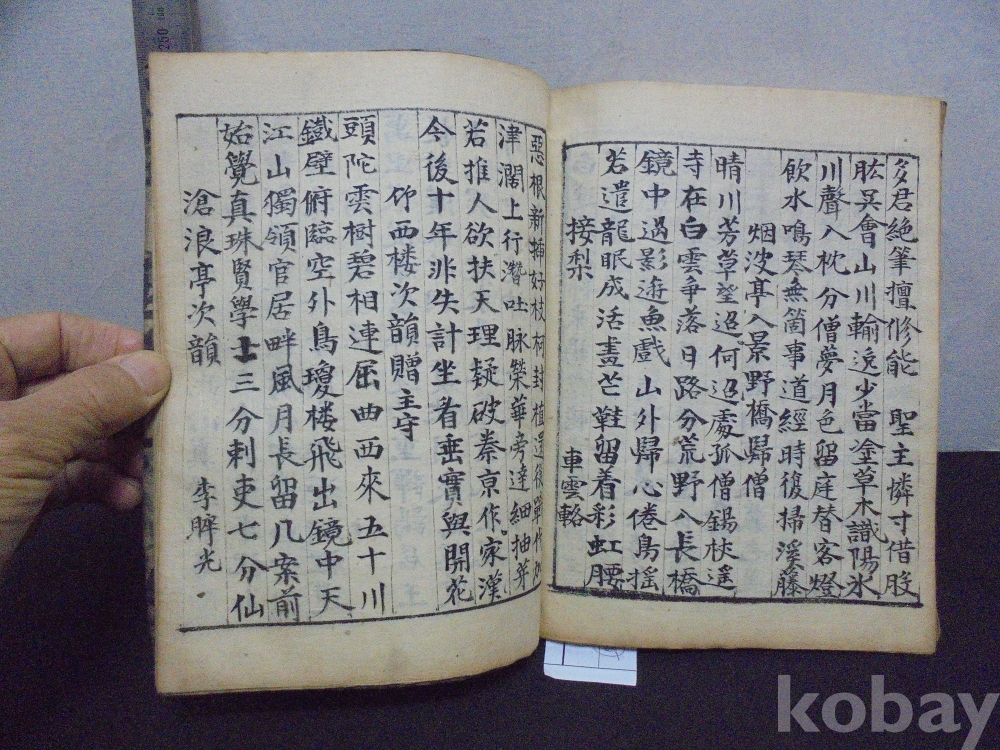 多君絶筆擅脩能 聖主憐才借股
肱吳會山川輸逸少當塗草木識陽氷
川聲入枕分僧夢月色留庭替客燈
飲水鳴琴無箇事道經時復掃溪藤
烟波亭八景野橋歸僧
晴川芳草望迢何迢處孤僧錫杖遥
寺在白雲爭落日路分荒野入長橋
鏡中過影逰魚戲山外歸心倦鳥搖
若遣龍眠成活畫芒鞋留着彩虹腰
接梨 車雲輅
惡根新揷好枝柯封植還後
津濶上行潛吐脉榮華旁達細抽芽
若推人欲扶天理疑破秦京作家漢
今後十年非失計坐看垂實與開花
仰西楼次韻贈主守
頭陀雲樹碧相連屈曲西來五十川
鐵壁俯臨空外鳥瓊楼飛出鏡中天
江山獨領官居畔風月長留几案前
始覺真珠賢學士三分刺吏七分仙
滄浪亭次韻 李晬光
250
kobay